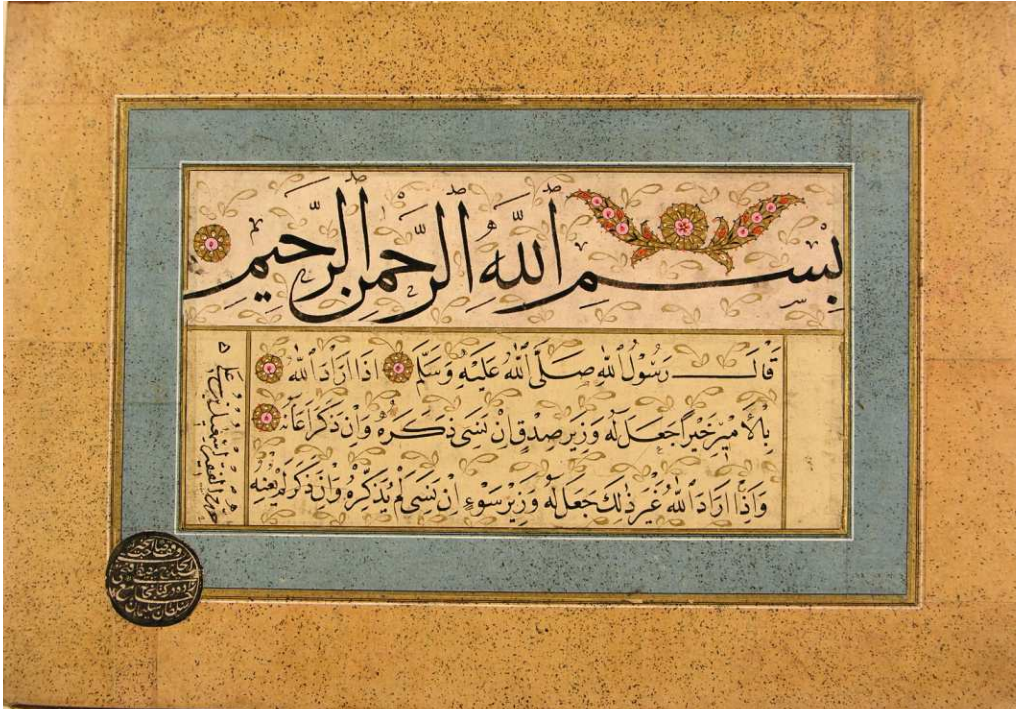 بِسْمِ اللهِ الرَّحْمٰنِ الرَّحِيمِ
قَالَ رَسُولُ اللهِ صَلَّى اللهُ عَلَيْهِ وَسَلَّمَ اِذَا اَرَادَ اللهُ
بِالْاَمِيرِ خَيْرًا جَعَلَ لَهُ وَزِيرَ صِدْقٍ اِنْ نَسِيَ ذَكَّرَهُ وَاِنْ ذَكَرَ اَعَانَهُ
وَاِذَا اَرَادَ اللهُ غَيْرَ ذٰلِكَ جَعَلَ لَهُ وَزِيرَ سَوْءٍ اِنْ نَسِيَ لَمْ يُذَكِّرْهُ وَاِنْ ذَكَرَ لَمْ يُعِنْهُ